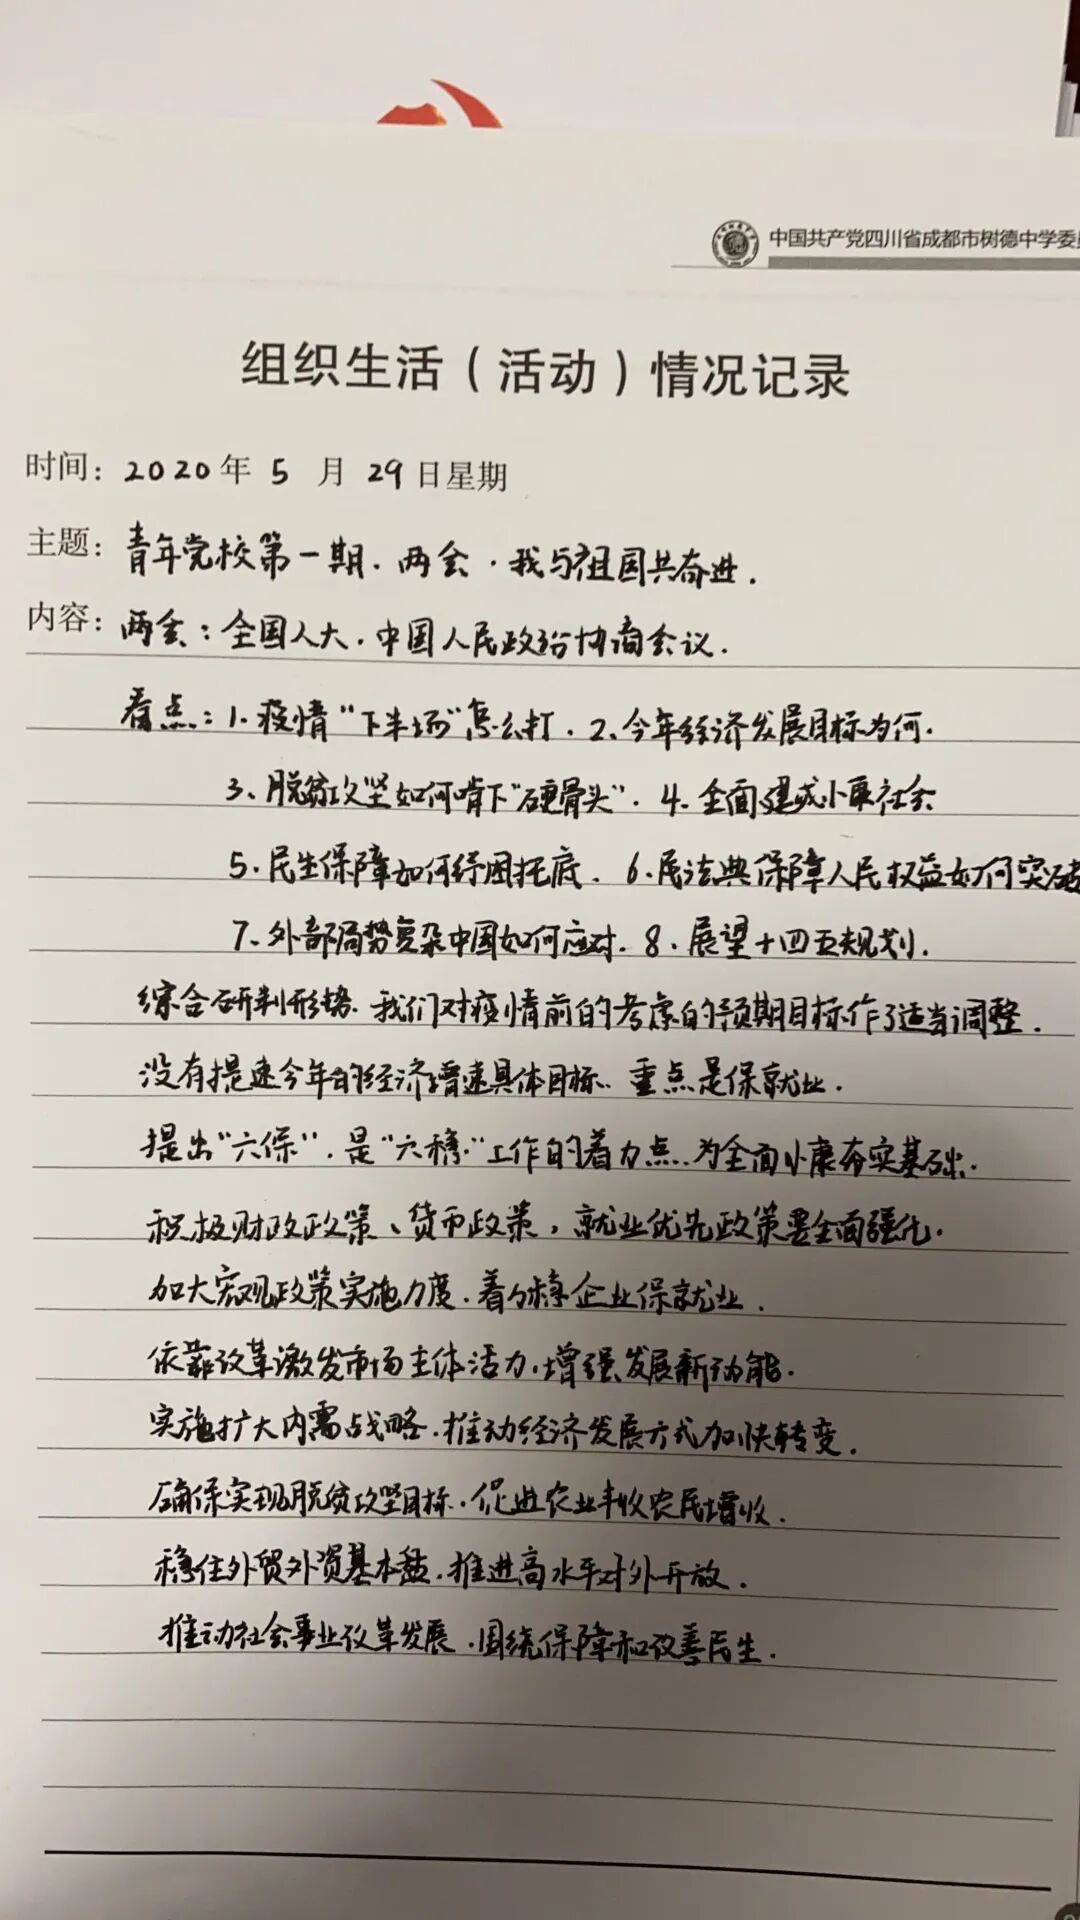 中国共产党四川省成都市树德中学委
组织生活（活动）情况记录
时间：2020年 5 月 29日星期
主题：青年党校第一期.两会·我与祖国共奋进.
内容：两会：全国人大.中国人民政治协商会议.
看点：1.疫情“下半场”怎么打. 2.今年经济发展目标为何.
3.脱贫攻坚如何啃下“硬骨头”. 4.全面建成小康社会
5.民生保障如何纾困托底. 6.民法典保障人民权益如何突破
7.外部局势复杂中国如何应对. 8.展望十四五规划.
综合研判形势.我们对疫情前的考虑的预期目标作了适当调整.
没有提速今年的经济增速具体目标.重点是保就业.
提出“六保”.是“六稳”工作的着力点.为全面小康夯实基础.
积极财政政策、货币政策，就业优先政策要全面强化.
加大宏观政策实施力度.着力稳企业保就业.
依靠改革激发市场主体活力.增强发展新动能.
实施扩大内需战略.推动经济发展方式加快转变.
确保实现脱贫攻坚目标.促进农业丰收农民增收.
稳住外贸外资基本盘.推进高水平对外开放.
推动社会事业改革发展.围绕保障和改善民生.